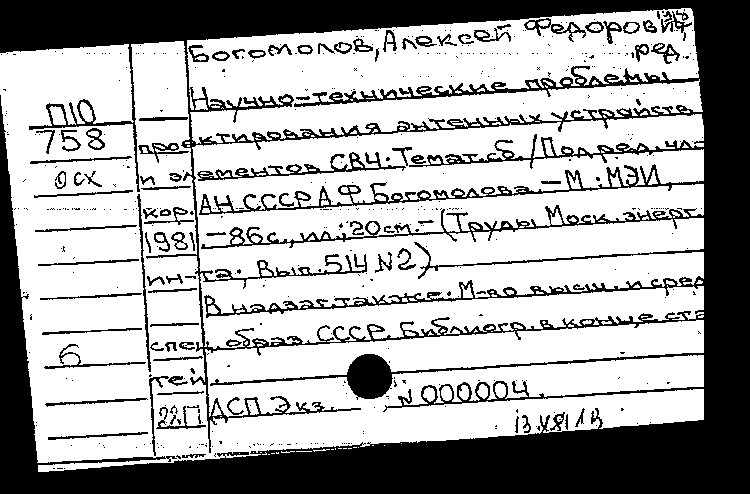 Богомолов, Алексей Федорович,
ред.
П10
758
осх
Научно-технические проблемы
проектирования антенных устройств
и элементов СВЧ: Темат. сб. / Под ред. чл.-
кор. АН СССР А.Ф. Богомолова. – М.: МЭИ,
1981. – 86 с., ил.; 20 см. – (Труды Моск. энерг.
ин-та; Вып. 514 N2).
В надзаг. также: М-во высш. и сред.
спец. образ. СССР. Библиогр. в конце ста
тей.
б
22П ДСП. Экз. N 000004.